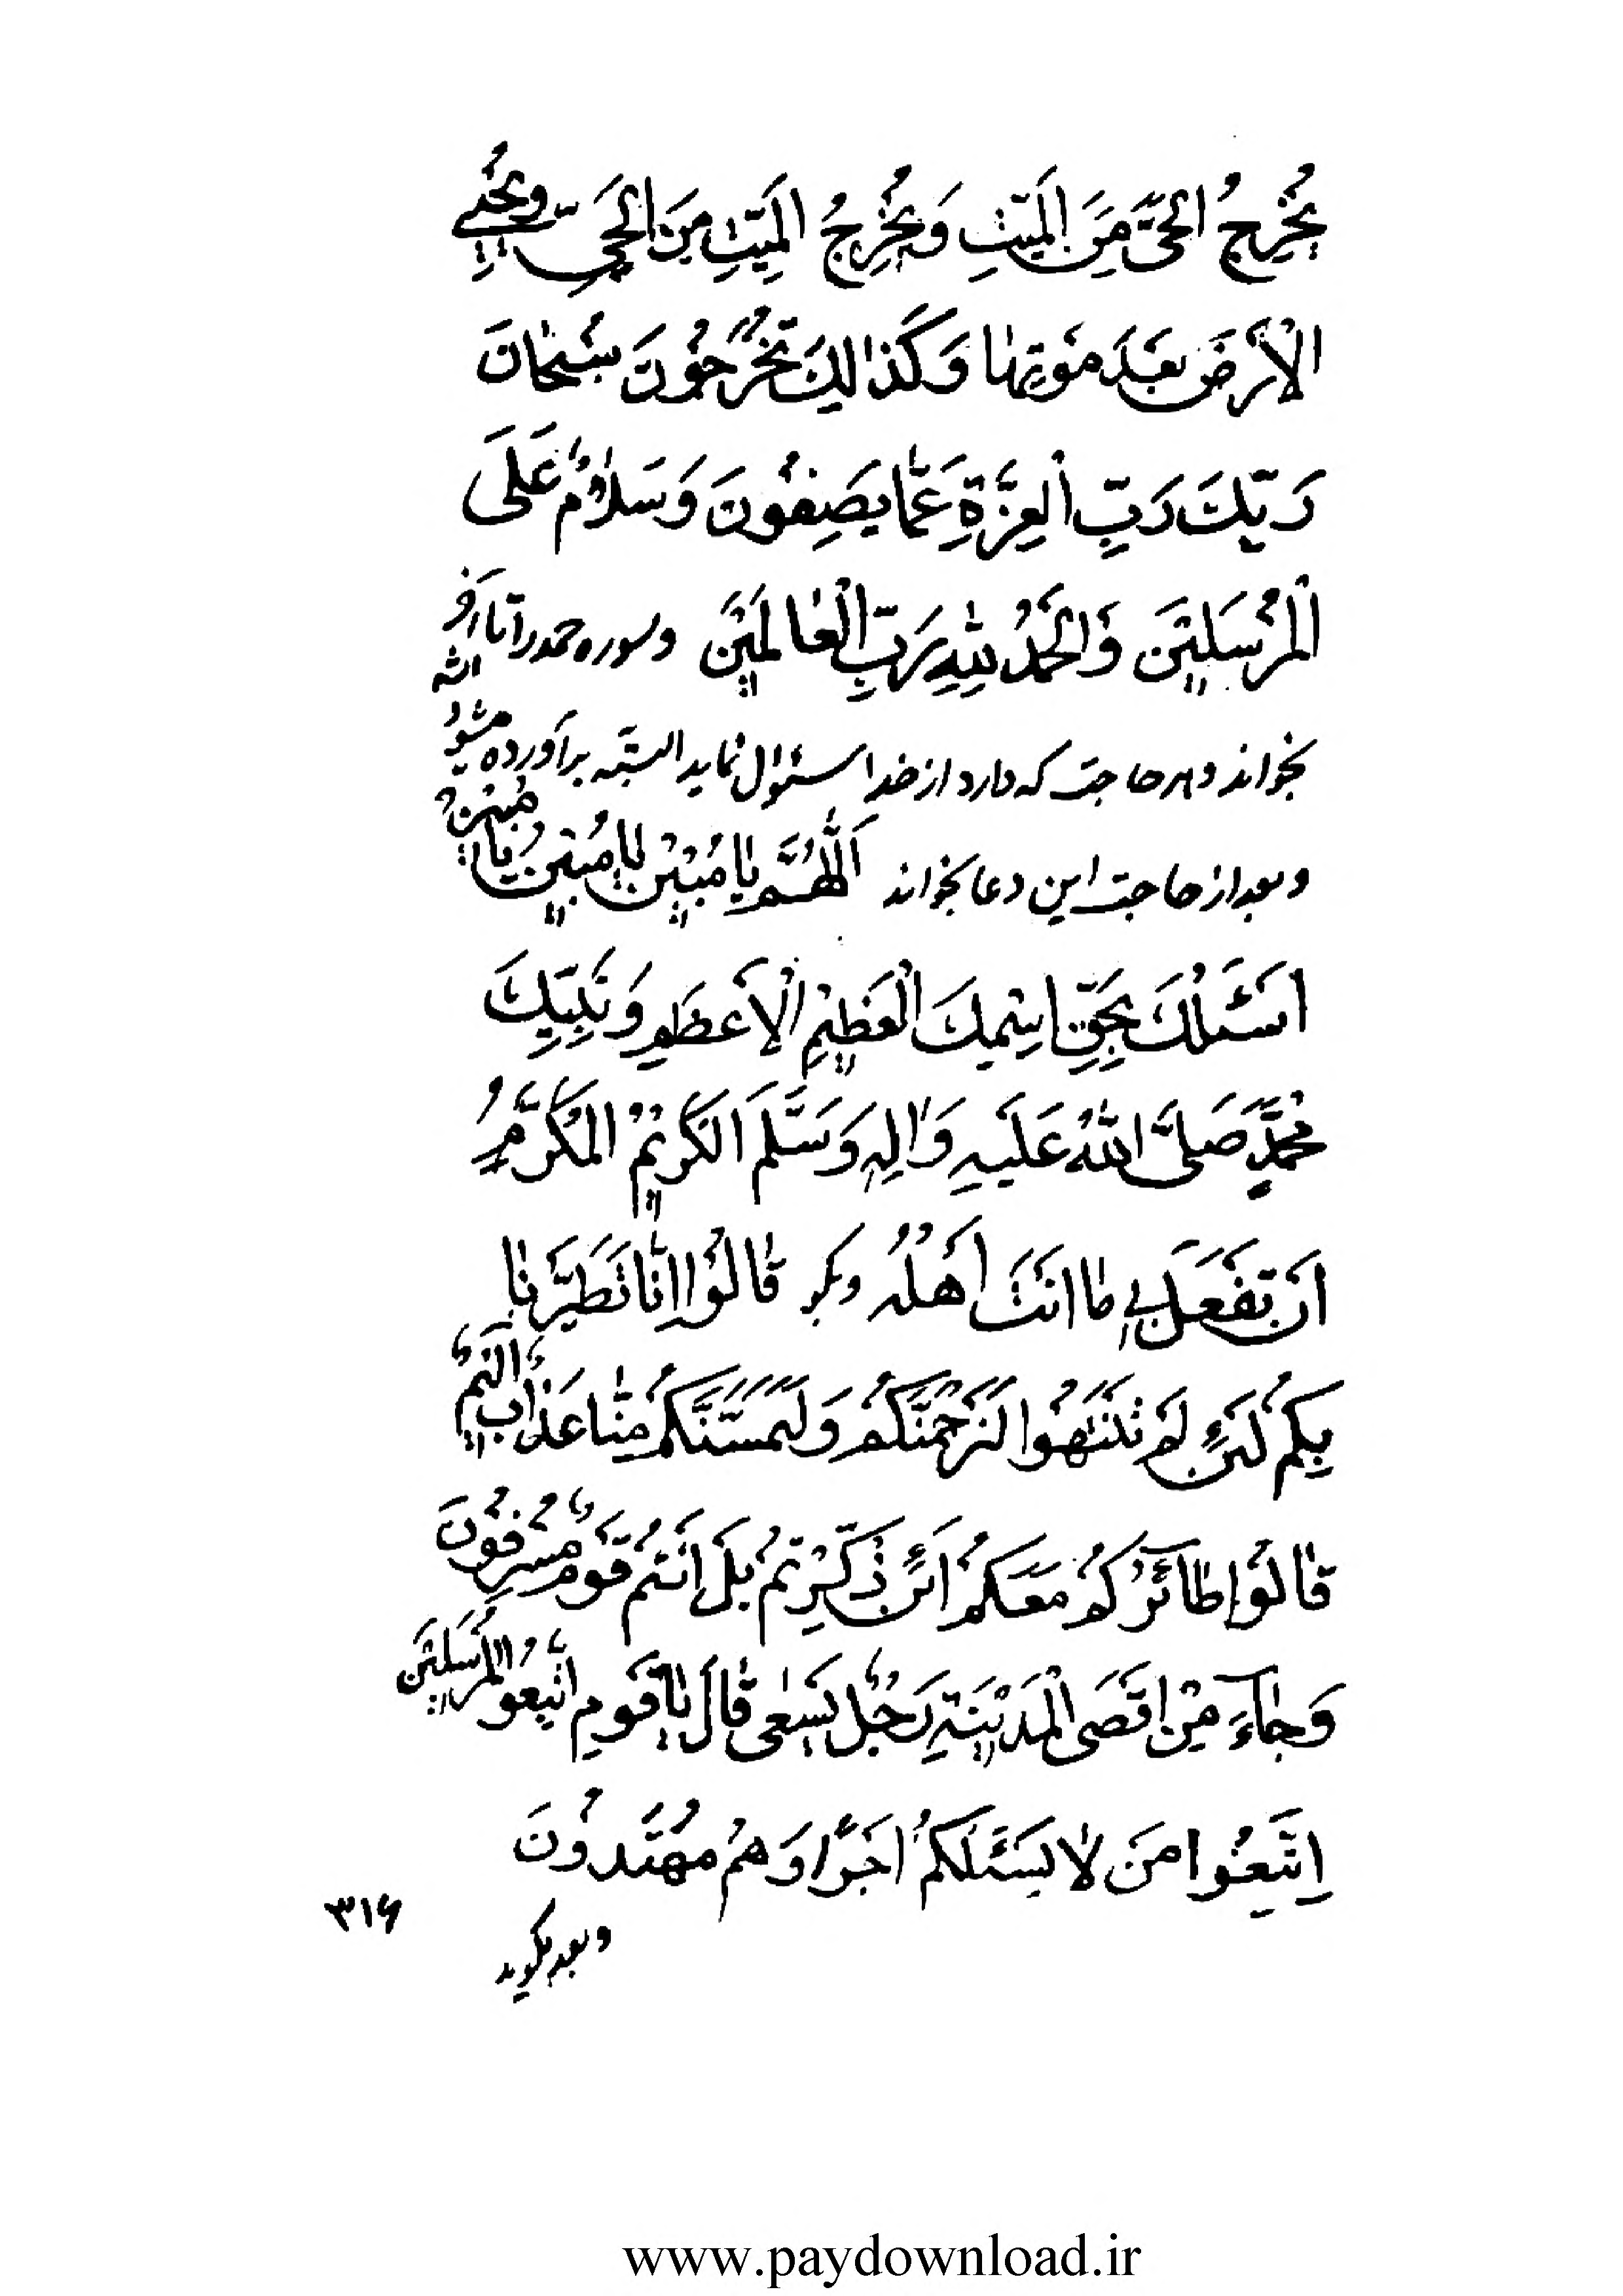 يُخْرِجُ الْحَيَّ مِنَ الْمَيِّتِ وَيُخْرِجُ الْمَيِّتِ مِنَ الْحَيِّ وَيُحْيِي
الْأَرْضَ بَعْدَ مَوْتِهَا وَكَذَالِكَ تُخْرَجُونَ سُبْحَانَ
رَبِّكَ رَبِّ الْعِزَّةِ عَمَّا يَصِفُونَ وَسَلَامٌ عَلَى
الْمُرْسَلِينَ وَالْحَمْدُ لِلّٰهِ رَبِّ الْعَالَمِينَ وسوره حمد را تا آخر
بخواند و هر حاجت که دارد از خدا سئوال نماید البته برآورده میشود انشاالله
و بعد از حاجت این دعا بخواند اَللّٰهُمَّ يَا مُبِينُ يَا مُبِينُ يَا مُبِينُ
اَسْئَلُكَ بِحَقِّ اسْمِكَ الْعَظِيمِ الْأَعْظَمِ وَنَبِيِّكَ
مُحَمَّدٍ صَلَّى اللّٰهُ عَلَيهِ وَاٰلِهِ وَسَلَّمَ الْكَرِيمُ الْمُكَرَّمُ
اَنْ تَفْعَلَ بِي مَا اَنْتَ اَهْلُهُ و بگو قَالُوا اِنَّا تَطَيَّرْنَا
بِكُمْ لَئِنْ لَمْ تَنْتَهُوا لَنَرْجُمَنَّكُمْ وَلَيَمَسَّنَّكُمْ مِنَّا عَذَابٌ اَلِيمٌ
قَالُوا طَائِرُكُمْ مَعَكُمْ اَئِنْ ذُكِّرْتُمْ بَلْ اَنْتُمْ قَوْمٌ مُسْرِفُونَ
وَجَاءَ مِنْ اَقْصَى الْمَدِينَةِ رَجُلٌ يَسْعٰى قَالَ يَا قَوْمِ اتَّبِعُوا الْمُرْسَلِينَ
اِتَّبِعُوا مَنْ لَا يَسْئَلُكُمْ اَجْرًا وَهُمْ مُهْتَدُونَ
و بعد بگوید
۳۱۶
www.paydownload.ir